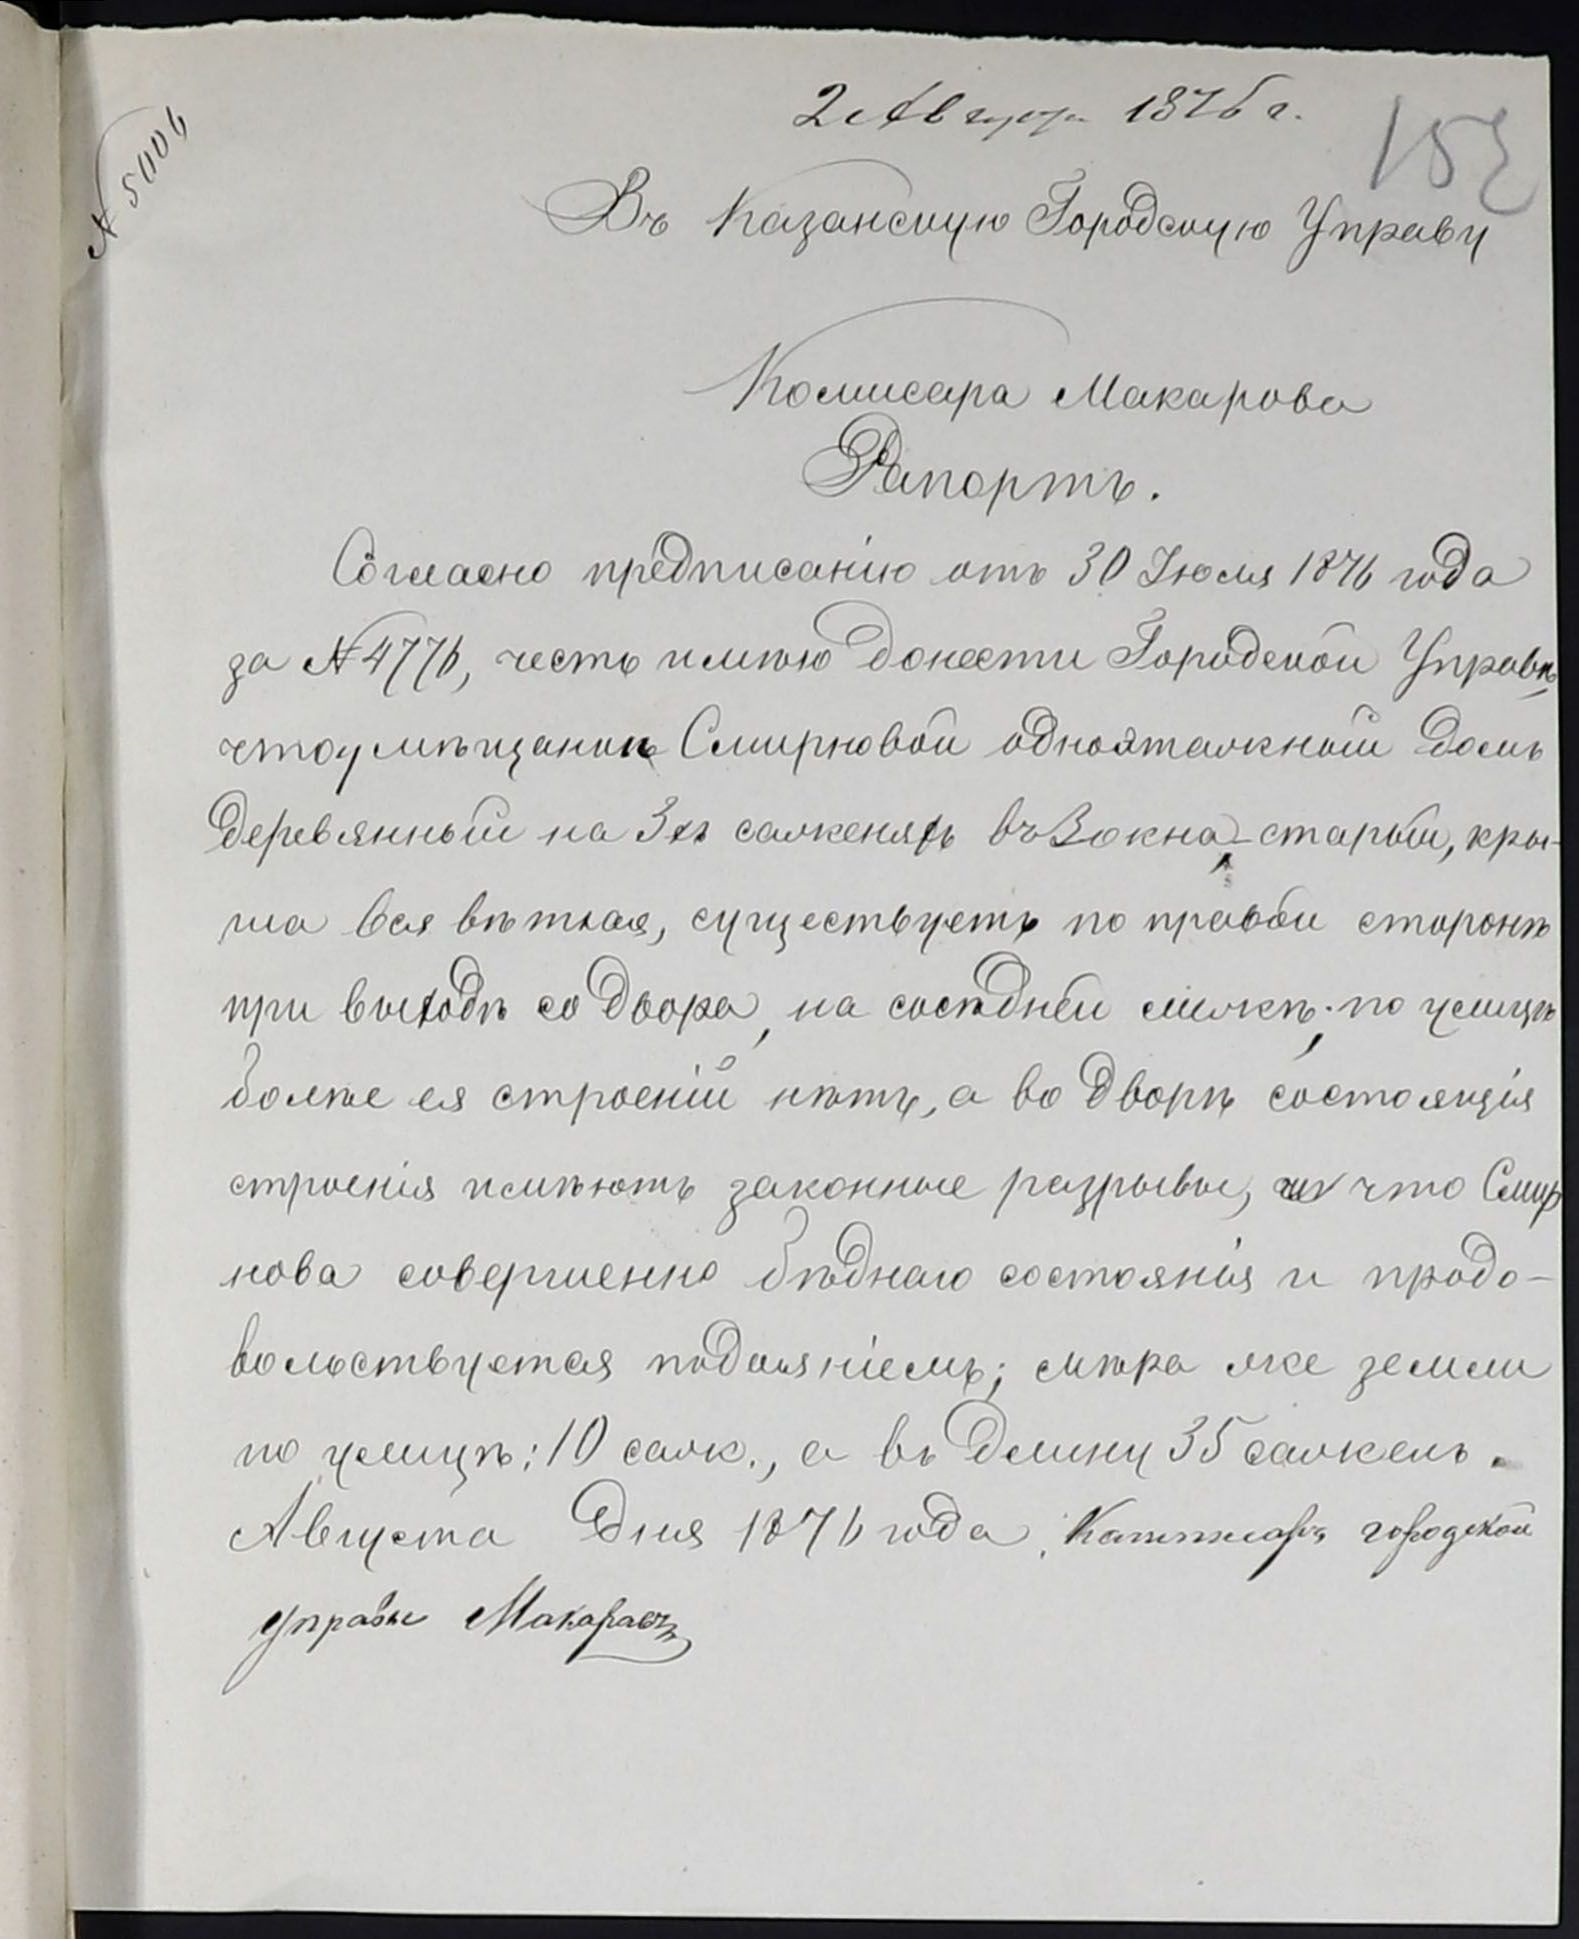 2 Августа 1876 г.
152
№ 5006
Въ Казанскую Городскую Управу
Комисара Макарова
Рапортъ.
Согласно предписанію отъ 30 Іюля 1876 года
за № 4776, честь имѣю донести Городской Управѣ,
что у мѣщанки Смирновой одноэтажный домъ
деревянный на 3хъ саженяхъ въ 3 окна старый, кры-
ша вся вѣтхая, существуетъ по правой сторонѣ
при выходѣ со двора, на сосѣдней межѣ; по улицѣ
болѣе ея строеній нѣтъ, а во дворѣ состоящія
строенія имѣютъ законные разрывы, что Смир
нова совершенно бѣднаго состоянія и продо-
вольствуется подаяніемъ; мѣра же земли
по улицѣ: 10 саж., а въ длину 35 сажень.
Августа дня 1876 года. городской
управы Макаровъ